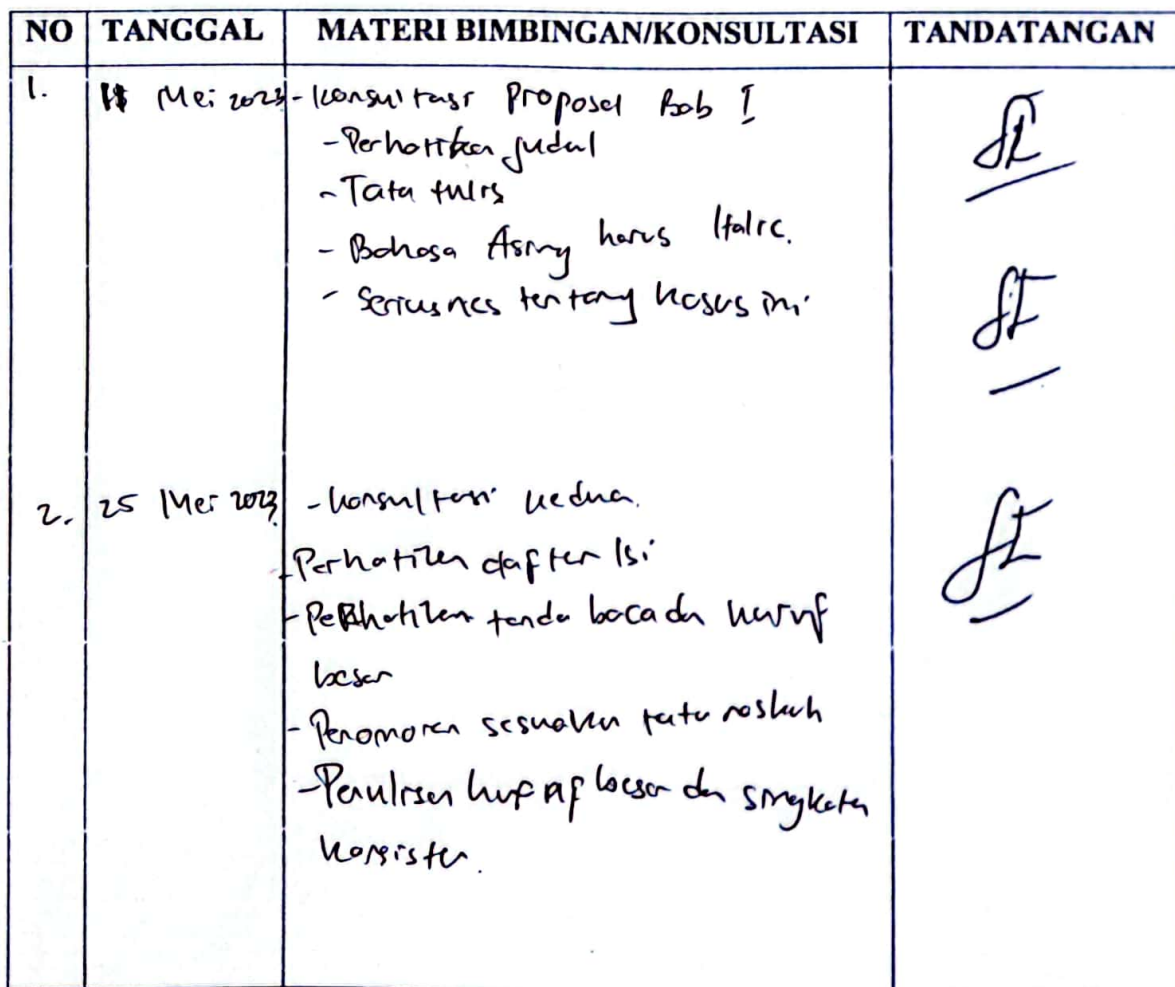 NO TANGGAL MATERI BIMBINGAN/KONSULTASI TANDATANGAN
1. Mei 2023 - Konsultasi Proposal Bab I
- Perhatikan judul
- Tata tulis
- Bahasa Asing harus Italic.
- Seriusnes tentang kasus ini
2. 25 Mei 2023 - Konsultasi kedua.
- Perhatikan daftar Isi
- Perhatikan tanda baca dan huruf
besar
- Penomoran sesuaikan tata naskah
- Penulisan huruf besar dan singkatan
konsisten.